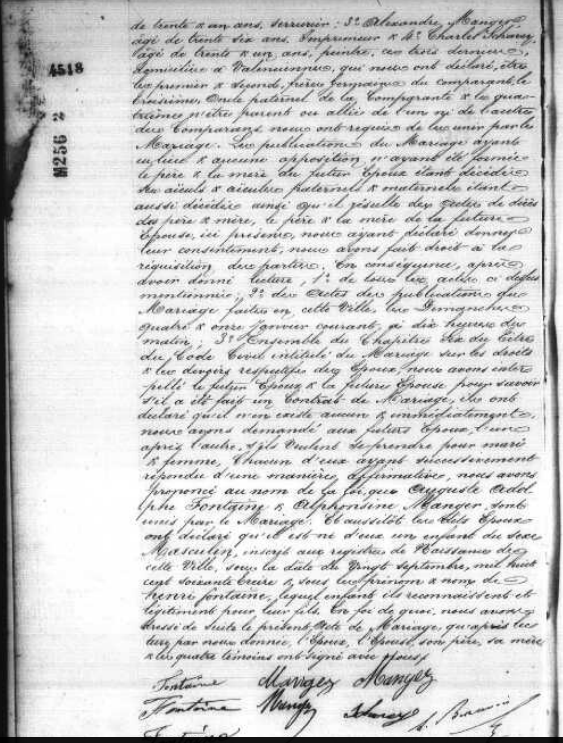 de trente & un ans, serrurier; 3° Alexandre, Manger
âgé de trente six ans, Imprimeur & 4° Charles
âgé de trente & un ans, peintre, ces trois derniers,
domiciliés à Valenciennes, qui nous ont déclaré, être
les premier & second, frères germains du comparant, le
troisième, Oncle paternel de la Comparante & le qua-
trième n'être parent ou allié de l'un ni de l'autre
des Comparans, nous ont requis de les unir par le
Mariage. Les publications du Mariage ayant
eu lieu & aucune opposition n'ayant été formée
le père & la mère du futur Epoux étant décédés
ses aïeuls & aïeules paternels & maternels étant
aussi décédés ainsi qu'il résulte des actes de décès
des père & mère, le père & la mère de la future
Epouse, ici présens, nous ayant déclaré donner
leur consentement, nous avons fait droit à la
réquisition des parties. En conséquence, après
avoir donné lecture, 1° de tous les actes ci dessus
mentionnés; 2° des Actes des publications de
Mariage faites en cette Ville, les Dimanches
quatre & onze Janvier courant, à dix heures du
matin; 3° Ensemble du Chapitre Six du titre
du Code Civil intitulé du Mariage sur les droits
& les devoirs respectifs des Epoux, nous avons inter
pellé le futur Epoux & la future Epouse pour savoir
s'il a été fait un Contrat de Mariage, ils ont
déclaré qu'il n'en existe aucun & immédiatement,
nous avons demandé aux futurs Epoux, l'un
après l'autre, s'ils veulent se prendre pour mari
& femme, Chacun d'eux ayant successivement
répondu d'une manière affirmative, nous avons
prononcé au nom de la loi, que Auguste Adol
phe Fontaine & Alphonsine Manger, sont
unis par le Mariage. Et aussitôt les dits Epoux
ont déclaré qu'il est né d'eux un enfant du sexe
Masculin, inscrit aux registres de Naissance de
cette Ville, sous la date du Vingt septembre, mil huit
cent soixante treize &, sous les prénom & nom de
henri fontaine, lequel enfant ils reconnaissent et
légitiment pour leur fils. En foi de quoi, nous avons
dressé de suite le présent, Acte de Mariage, qu'après lec
ture par nous donnée, l'Epoux, l'Epouse, son père, sa mère
& les quatre témoins ont signé avec Nous
Fontaine Manger Manger
Fontaine Manger
4518
M256 2